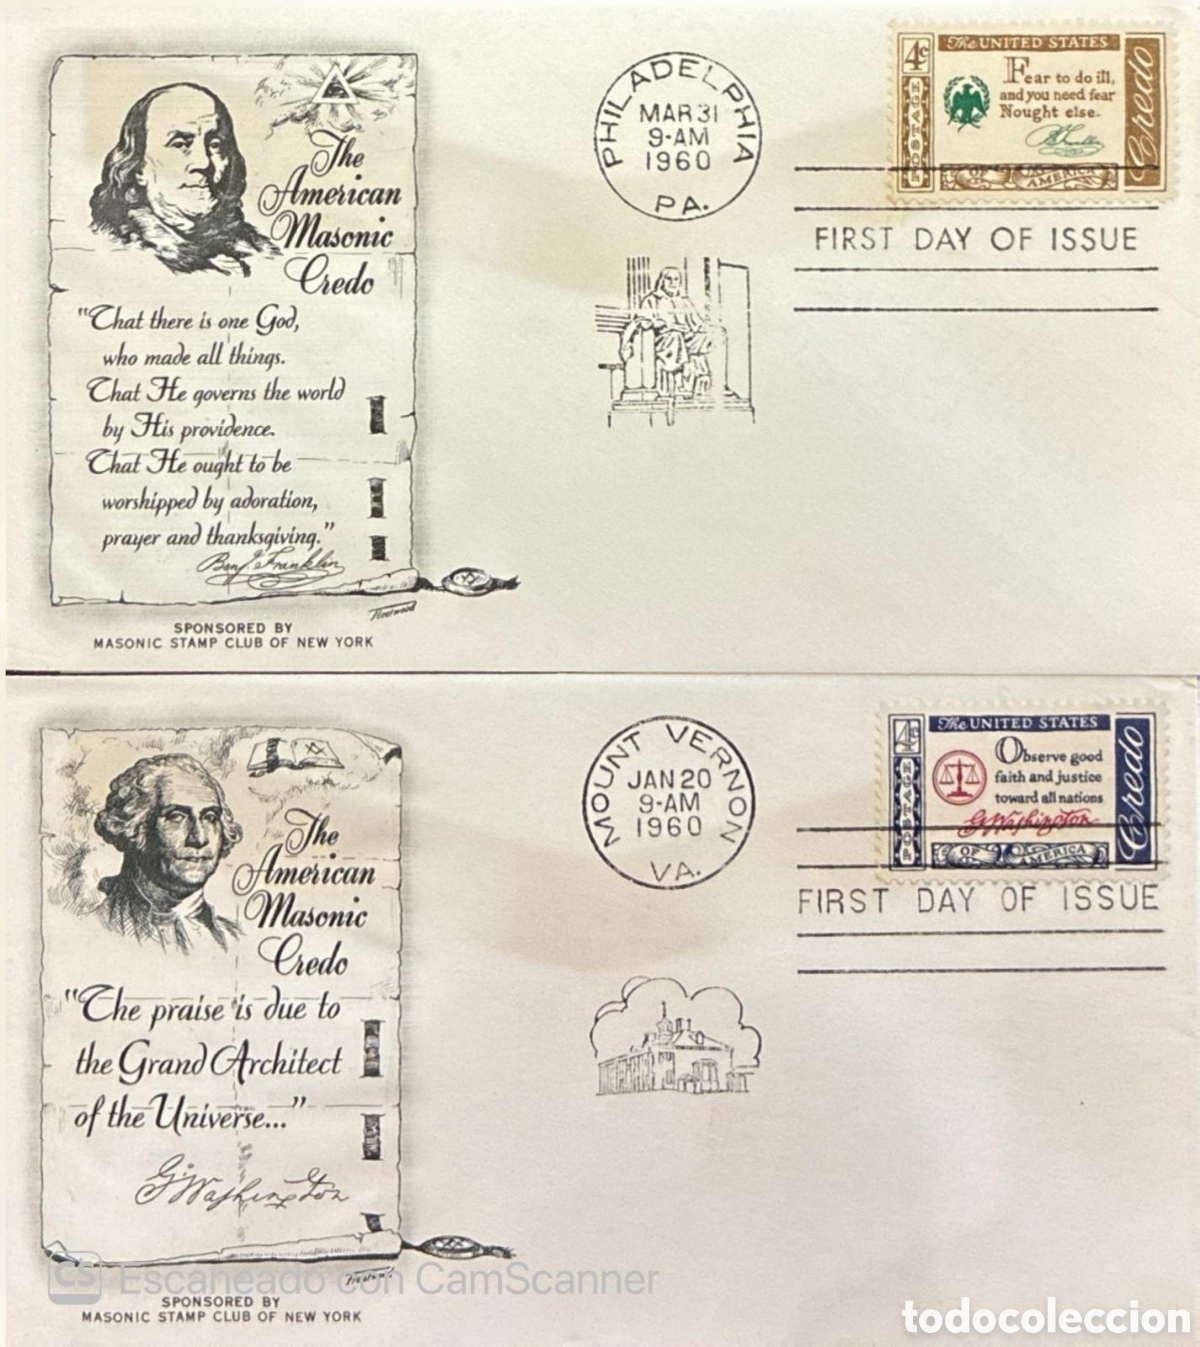 The
American
Masonic
Credo
"That there is one God,
who made all things.
That He governs the world
by His providence.
That He ought to be
worshipped by adoration,
prayer and thanksgiving."
Benj. Franklin
Fleetwood
SPONSORED BY
MASONIC STAMP CLUB OF NEW YORK
PHILADELPHIA
MAR 31
9-AM
1960
PA.
4c
The UNITED STATES
POSTAGE
Fear to do ill,
and you need fear
Nought else.
B Franklin
Credo
OF AMERICA
FIRST DAY OF ISSUE
The
American
Masonic
Credo
"The praise is due to
the Grand Architect
of the Universe..."
G Washington
Fleetwood
SPONSORED BY
MASONIC STAMP CLUB OF NEW YORK
MOUNT VERNON
JAN 20
9-AM
1960
VA.
4c
The UNITED STATES
POSTAGE
Observe good
faith and justice
toward all nations
G Washington
Credo
OF AMERICA
FIRST DAY OF ISSUE
CS Escaneado con CamScanner
todocoleccion